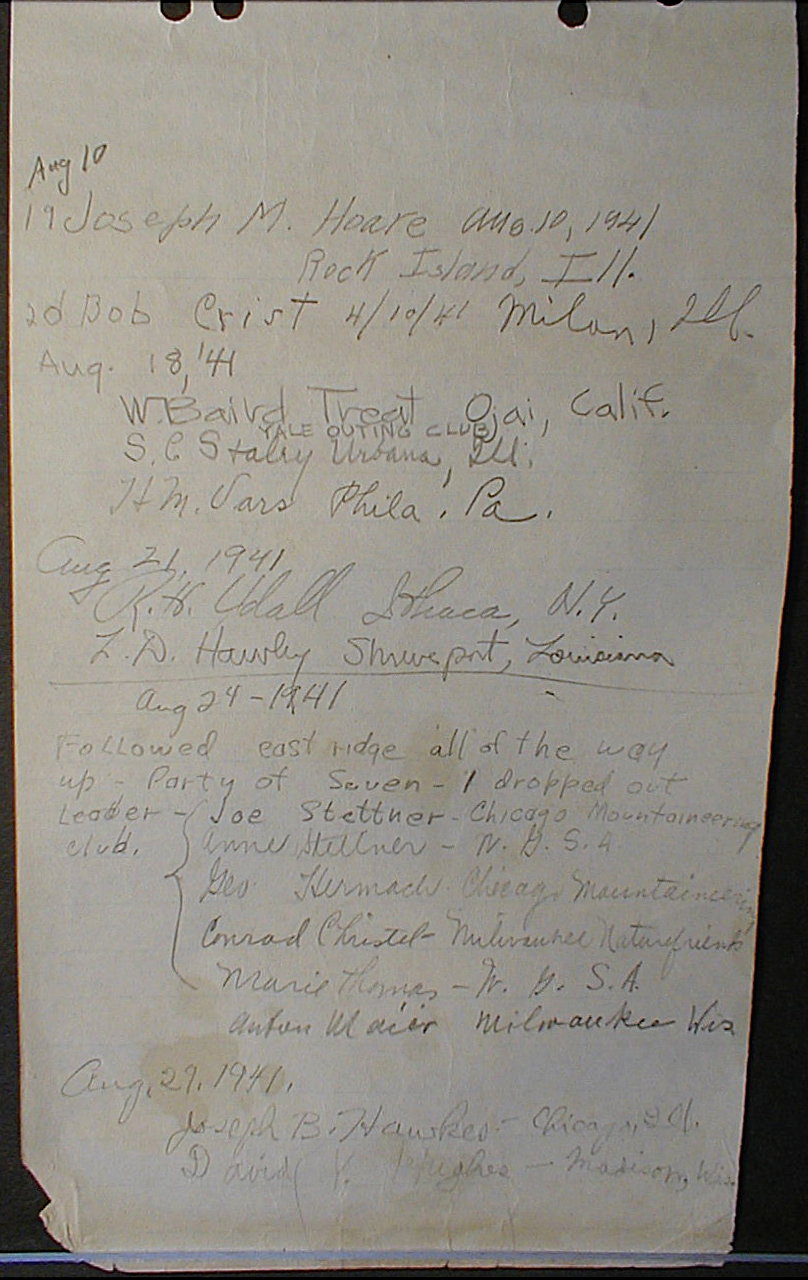 Aug 10
19 Joseph M. Hoare Aug. 10, 1941
Rock Island, Ill.
20 Bob Crist 4/10/41 Milan, Ill.
Aug. 18, '41
W. Baird Treat Ojai, Calif.
YALE OUTING CLUB
S. C Staley Urbana, Ill.
H M. Vars Phila. Pa.
Aug 21, 1941
R. H. Udall Ithaca, N.Y.
L. D. Hawley Shreveport, Louisiana
Aug 24 - 1941
Followed east ridge all of the way
up - Party of Seven - 1 dropped out
Leader - Joe Stettner - Chicago Mountaineering
club. Anne Stettner - N. G. S. A
Geo. Chicago Mountaineering
Conrad Christel - Milwaukee Naturefriends
Marie Thomas - N. G. S. A.
Anton Maier Milwaukee Wis
Aug. 29. 1941.
Joseph B. Hawkes - Chicago, Ill.
David V. Hughes - Madison, Wis.